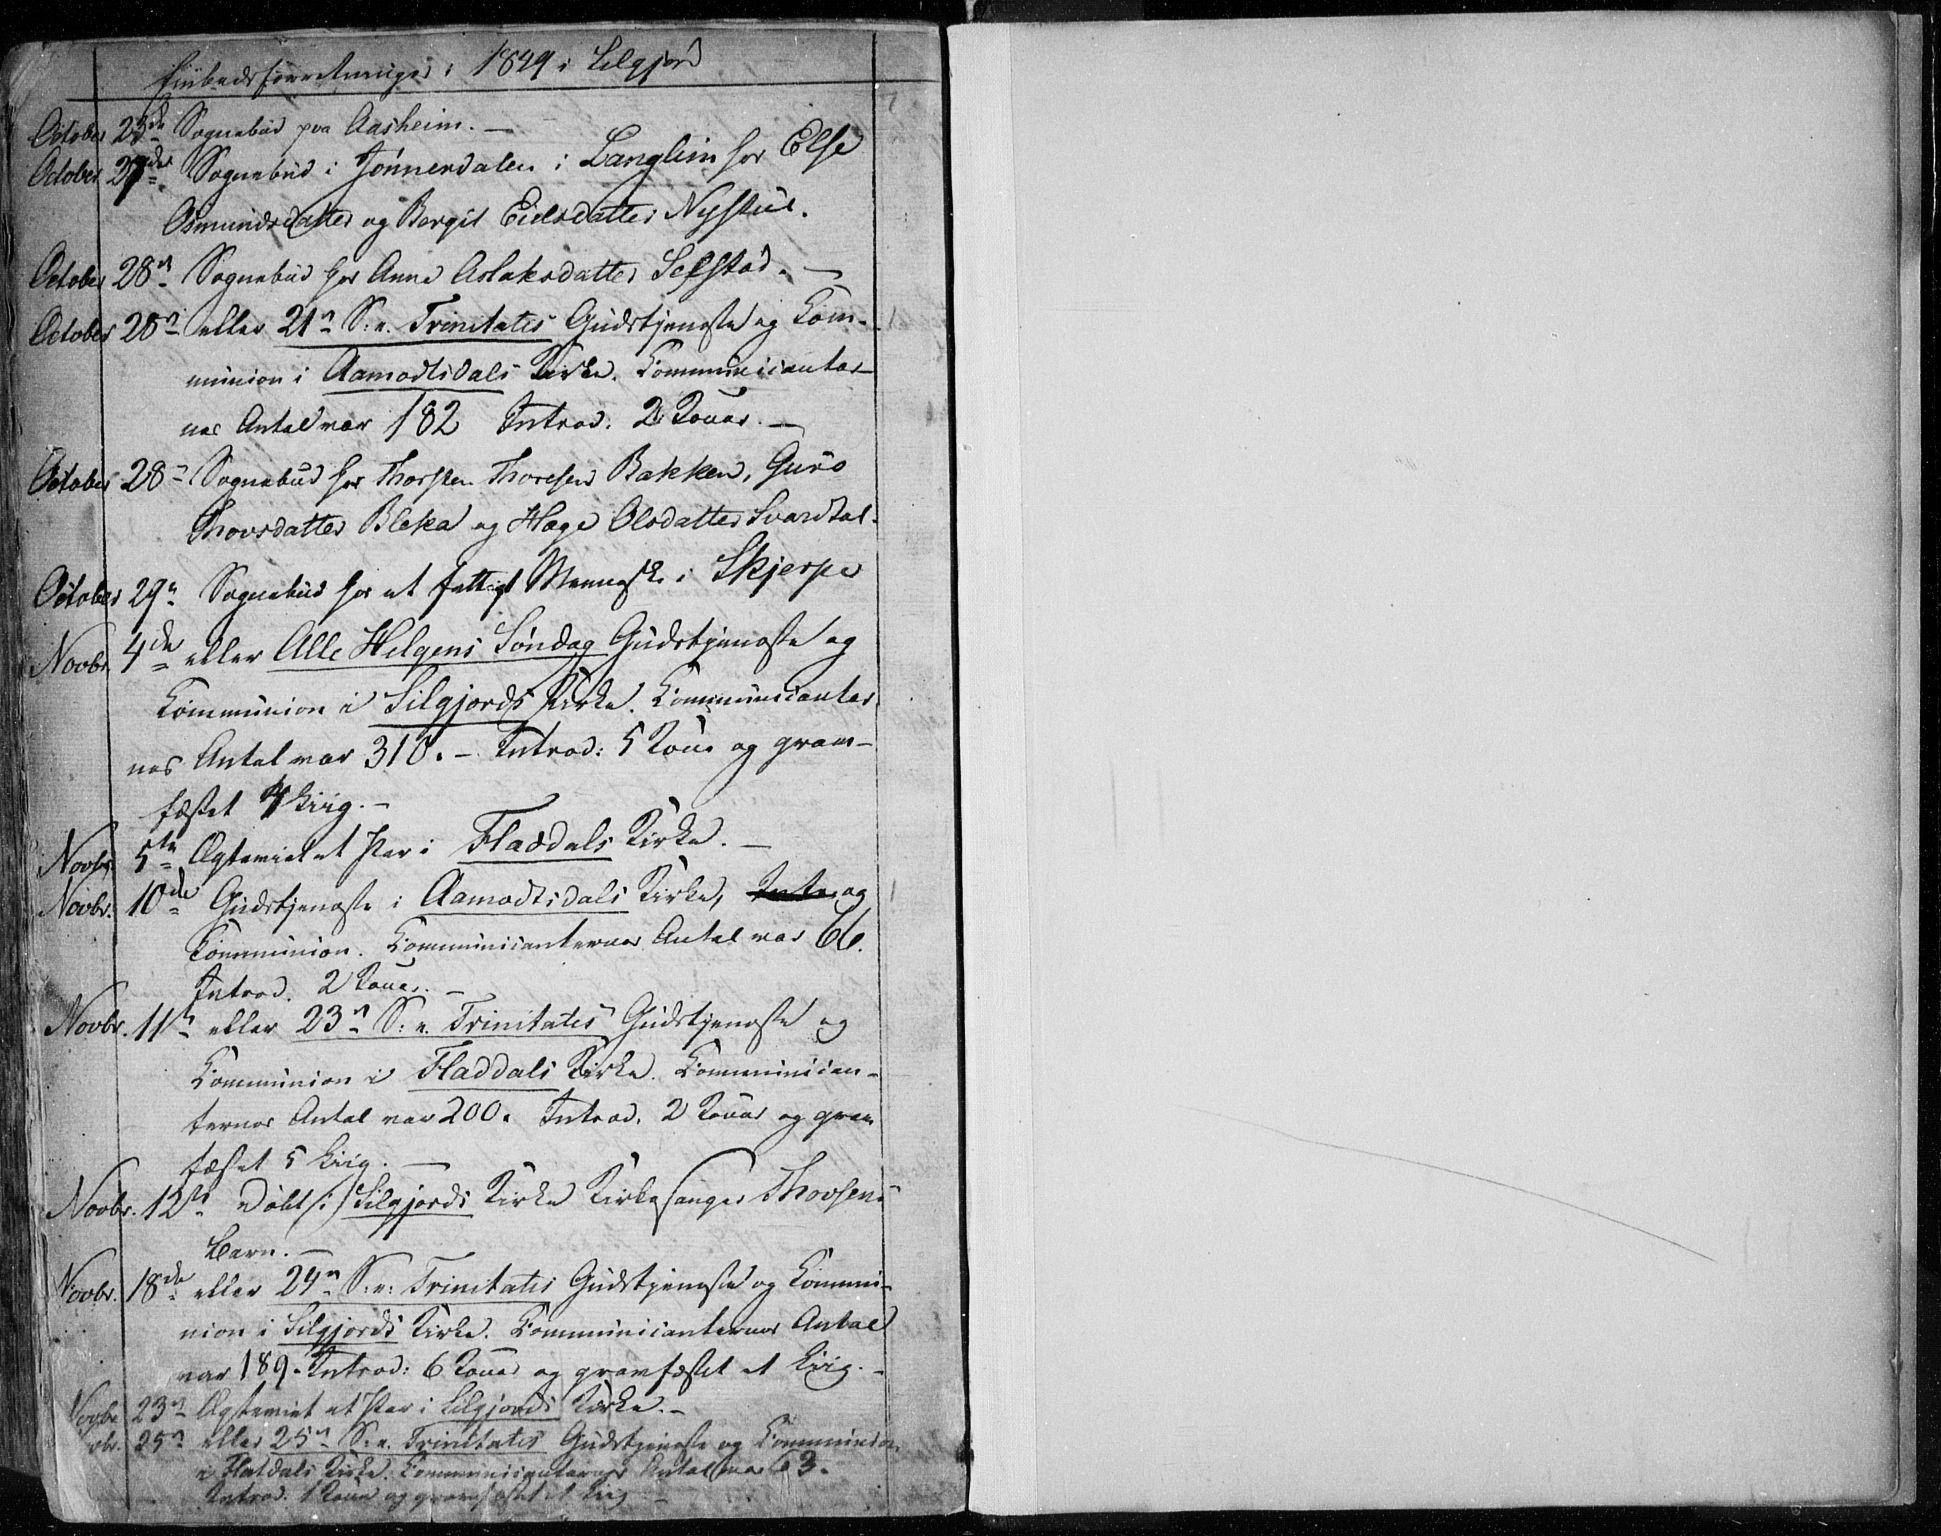 Embedsforretninger i 1849 i Silgjord
October 23de Sognebud paa Aasheim. —
October 27de Sognebud i Jönnerdalen i Langlim hos Else
Osmundsdatter og Bergit Eielsdatter Nystul.
October 28n Sognebud hos Anne Aslaksdatter Selstad. —
October 28n eller 21n S: e. Trinitatis Gudstjeneste og Com-
munion i Aamodtsdals Kirke. Communicanter-
nes Antal var 182 Introd: 2 Koner. —
October 28n Sognebud hos Thorsten Thoresen Bakken, Guro
Thovsdatter Bleka og Hæge Olsdatter Svardtal.
October 29n Sognebud hos et fattigt Menneske i Skjerper
Novbr. 4de eller Alle Helgens Søndag Gudstjeneste og
Communion i Silgjords Kirke. Communicanter
nes Antal var 310. — Introd: 5 Kone og grav-
fæstet 4 Liig. —
Novbr. 5te Ægteviet et Par i Fladdals Kirke. —
Novbr. 10de Gudstjeneste i Aamodtsdals Kirke, og
Communion. Communicanternes Antal var 66.
Introd. 2 Koner. —
Novbr. 11te eller 23n S: e. Trinitatis Gudstjeneste og
Communion i Fladdals Kirke. Communican-
ternes Antal var 200. Introd. 2 Koner og grav
fæstet 5 Liig. —
Novbr. 12te Døbt i Silgjords Kirke Kirkesanger Thovsens
Barn. —
Novbr. 18de eller 24n S: e: Trinitatis Gudstjeneste og Commu-
nion i Silgjords Kirke. Communicanternes Antal
var 189. Introd: 6 Koner og gravfæstet et Liig. —
Novbr 23n Ægteviet et Par i Silgjords Kirke. —
vbr. 25n eller 25n S: e. Trinitatis Gudstjeneste og Communion
i Flatdals Kirke. Communicanternes Antal var 63.
Introd. 1 Kone og gravfæstet et Liig —